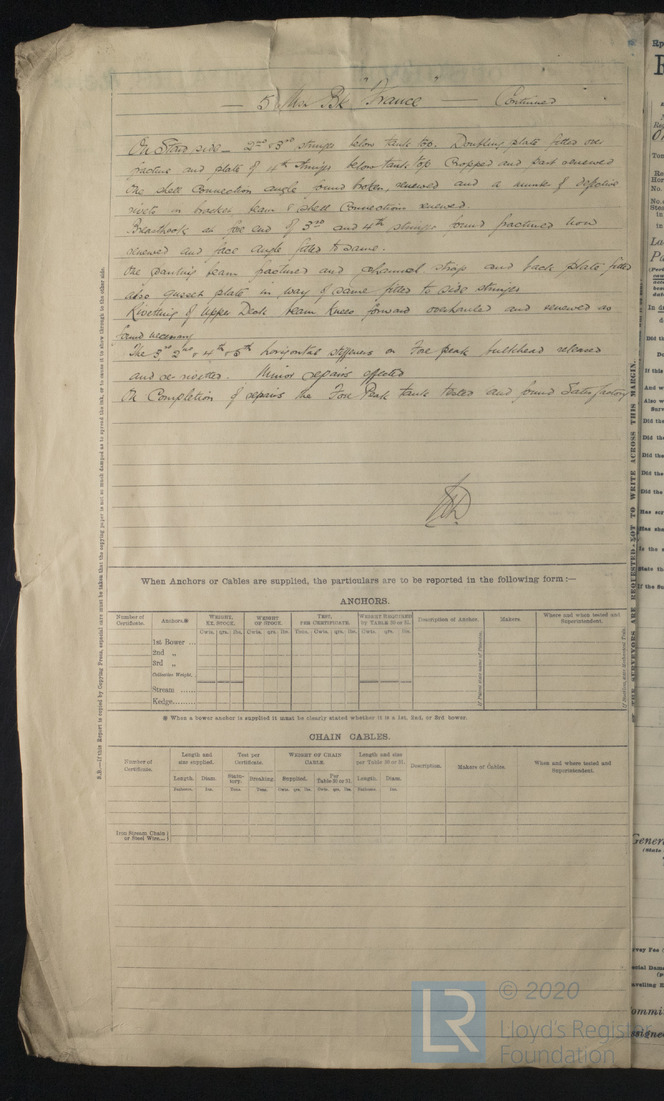 — 5 Mas Bk "France" — Continued
On Starb side — 2nd & 3rd stringers below tank top. Doubling plate fitted over
fracture and plate of 4th stringer below tank top Cropped and part renewed
One shell Connection angle found broken, renewed and a number of defective
rivets in bracket beam & shell Connection renewed.
Breasthook at fore end of 3rd and 4th stringer found fractured now
renewed and face angle fitted to same.
One panting beam fractured and channel strap and back plate fitted
also gusset plate in way of same fitted to side stringer
Riveting of Upper Deck beam knees forward overhauled and renewed as
found necessary
The 2nd 4th & 5th horizontal stiffeners on Fore peak bulkhead released
and re-rivetted. Minor repairs effected
On Completion of repairs the Fore Peak tank tested and found Satisfactory
When Anchors or Cables are supplied, the particulars are to be reported in the following form :—
ANCHORS.
Number of Certificate.
Anchors.*
WEIGHT, EX. STOCK.
WEIGHT OF STOCK.
TEST, PER CERTIFICATE.
WEIGHT REQUIRED by TABLE 30 or 31.
Description of Anchor.
Makers.
Where and when tested and Superintendent.
Cwts. qrs. lbs. Cwts. qrs. lbs. Tons. Cwts. qrs. lbs. Cwts. qrs. lbs.
1st Bower ...
2nd „
3rd „
Collective Weight.
Stream ......
Kedge......
* When a bower anchor is supplied it must be clearly stated whether it is a 1st, 2nd, or 3rd bower.
CHAIN CABLES.
Number of Certificate.
Length and size supplied.
Test per Certificate.
WEIGHT OF CHAIN CABLE
Length and size per Table 30 or 31.
Description.
Makers of Cables.
When and where tested and Superintendent.
Length. Diam. Statutory. Breaking. Supplied. Per Table 30 or 31. Length. Diam.
Fathoms. Ins. Tons. Tons. Cwts. qrs. lbs. Cwts. qrs. lbs. Fathoms. Ins.
Iron Stream Chain or Steel Wire...
N.B.—If this Report is copied by Copying Press, especial care must be taken that the copying paper is not so much damped as to spread the ink, or to cause it to show through to the other side.
THE SURVEYORS ARE REQUESTED NOT TO WRITE ACROSS THIS MARGIN.
LR
© 2020
Lloyd's Register
Foundation